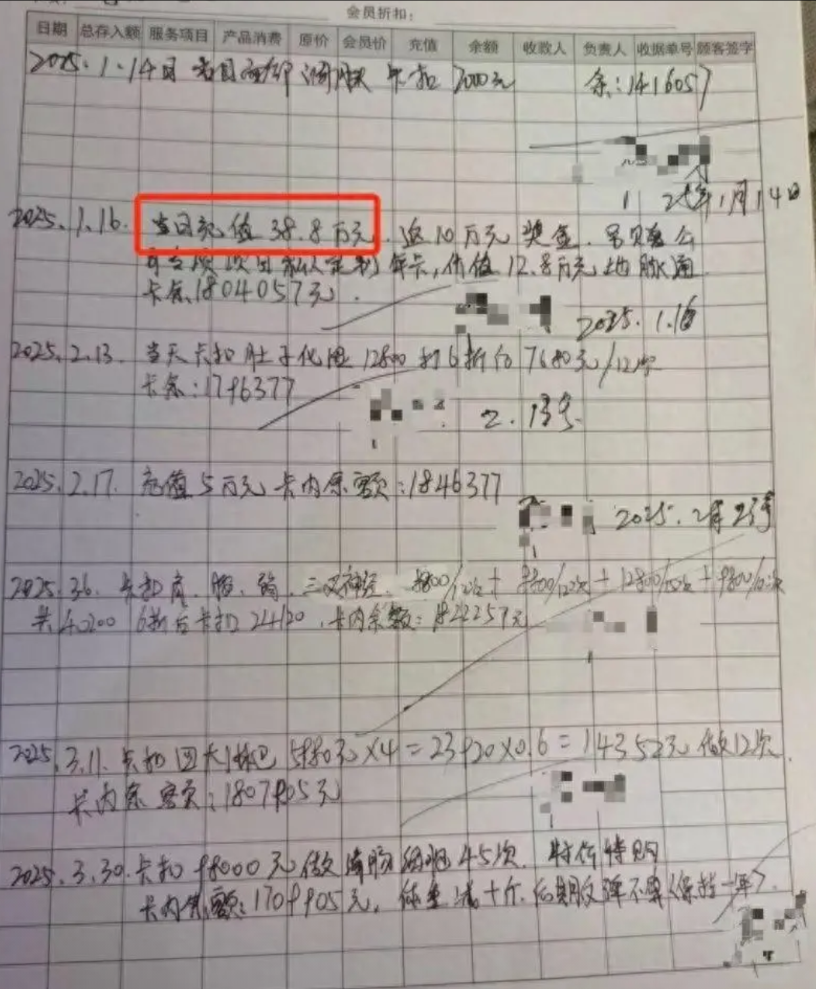 会员折扣：
日期 总存入额 服务项目 产品消费 原价 会员价 充值 余额 收款人 负责人 收据单号 顾客签字
2025.1.14日 当日 调肤 卡扣 7000元 余:1416057
25年1月14日
2025.1.16. 当日充值38.8万元.返10万元奖金.
专项项目私人定制年卡,价值12.8万元
卡余.1804057元.
2025.1.16
2025.2.13. 当天卡扣肚子 12800打6折后7680元/12次
卡余:1796377
2.13号
2025.2.17. 充值5万元卡内余额:1846377
2025.2月23号
2025.3.6. 卡扣 三叉神经. 9800/12次+12800/15次+9800/
共40200 6折后卡扣24120.卡内余额:1822257元
2025.3.11.卡扣四大淋巴 5980元×4=23920×0.6=14352元 做12次.
卡内余额:1807905元
2025.3.30.卡扣98000元做 45次. 特价特购
卡内余额:1709905元. 体重减十斤.后期反弹不算(保持一年)